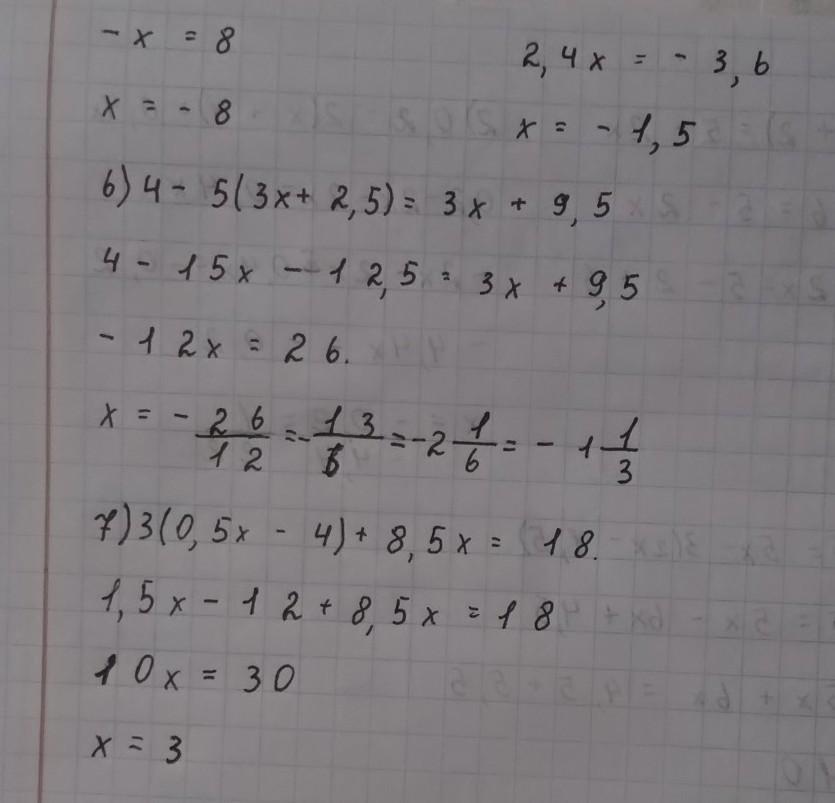 - x = 8
x = - 8
2,4x = - 3,6
x = - 1,5
6) 4 - 5(3x + 2,5) = 3x + 9,5
4 - 15x - 12,5 = 3x + 9,5
- 12x = 26.
x = - 26/12 = - 13/6 = - 2 1/6 = - 1 1/3
7) 3(0,5x - 4) + 8,5x = 18.
1,5x - 12 + 8,5x = 18
10x = 30
x = 3